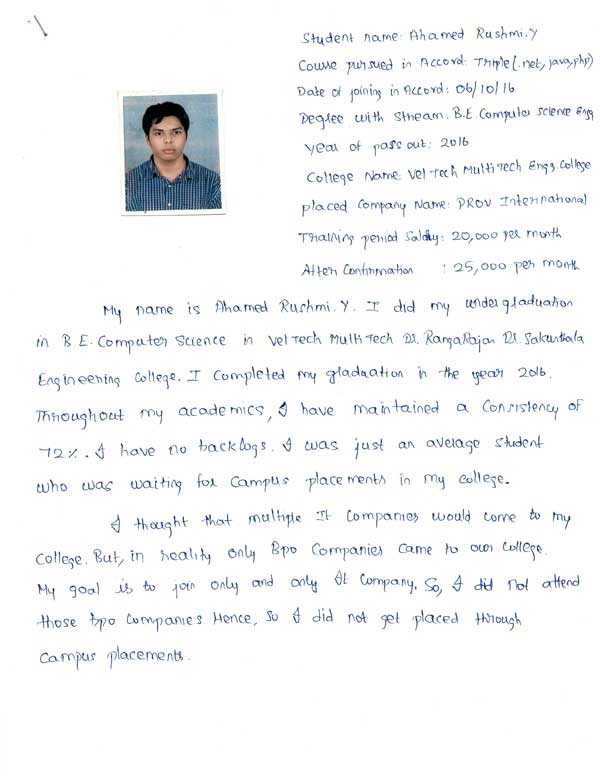 Student name: Ahamed Rushmi.Y
Course pursued in Accord: Triple(.net, java, php)
Date of joining in Accord: 06/10/16
Degree with Stream: B.E. Computer Science Engg
Year of pass out: 2016
College Name: Vel Tech Multi Tech Engg. College
placed Company Name: PROV International
Training period Salary: 20,000 per month
After Confirmation : 25,000 per month
My name is Ahamed Rushmi.Y. I did my undergraduation
in B.E. Computer Science in Vel Tech Multi Tech Dr. RangaRajan Dr. Sakunthala
Engineering College. I completed my graduation in the year 2016.
Throughout my academics, I have maintained a Consistency of
72%. I have no backlogs. I was just an average student
who was waiting for Campus placements in my college.
I thought that multiple It Companies would come to my
college. But, in reality only Bpo Companies came to our college.
My goal is to join only and only It Company. So, I did not attend
those bpo companies Hence, so I did not get placed through
Campus placements.